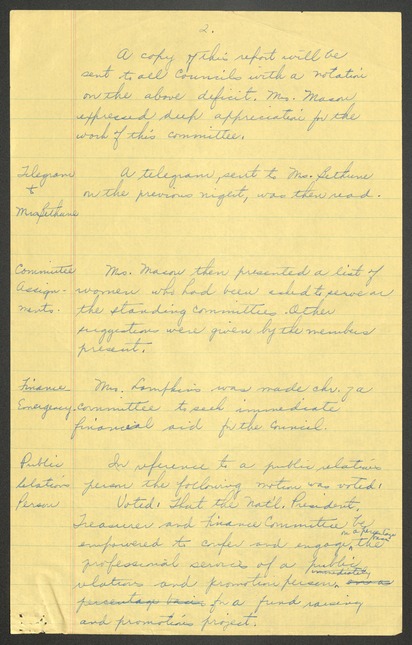 2.
A copy of this report will be
sent to all Councils with a notation
on the above deficit. Mrs. Mason
expressed deep appreciation for the
work of this committee.
Telegram
to
Mrs. Bethune
A telegram, sent to Mrs. Bethune
on the previous night, was then read.
Committee
Assign-
ments.
Mrs. Mason then presented a list of
women who had been asked to serve on
the standing committees. Other
suggestions were given by the members
present.
Finance
Emergency
Mrs. Lampkins was made chr. of a
committee to seek immediate
financial aid for the Council.
Public
Relations
Person
In reference to a public relations
person the following motion was voted:
Voted: That the Nat'l. President,
Treasurer and Finance Committee be
empowered to confer and engage, on a percentage basis, the
professional services of a public
relations and promotion person, immediately
percentage basis for a fund raising
and promotions project.